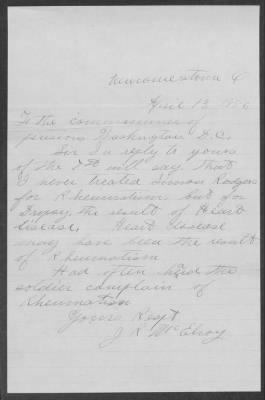 Newcomerstown O
April 13 1886
To the commissioner of
pensions Washington D.C.
Sir In reply to yours
of the 7th will say that
I never treated Simon Rodgers
for Rheumatism but for
Dropsy, the result of Heart
disease, Heart disease
may have been the result
of Rheumatism
Had often heard the
soldier complain of
Rheumatism
Yours Respt
J R McElroy